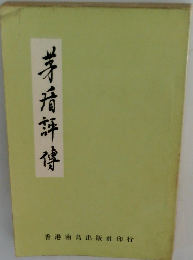 茅盾評傳
香港南島出版社印行